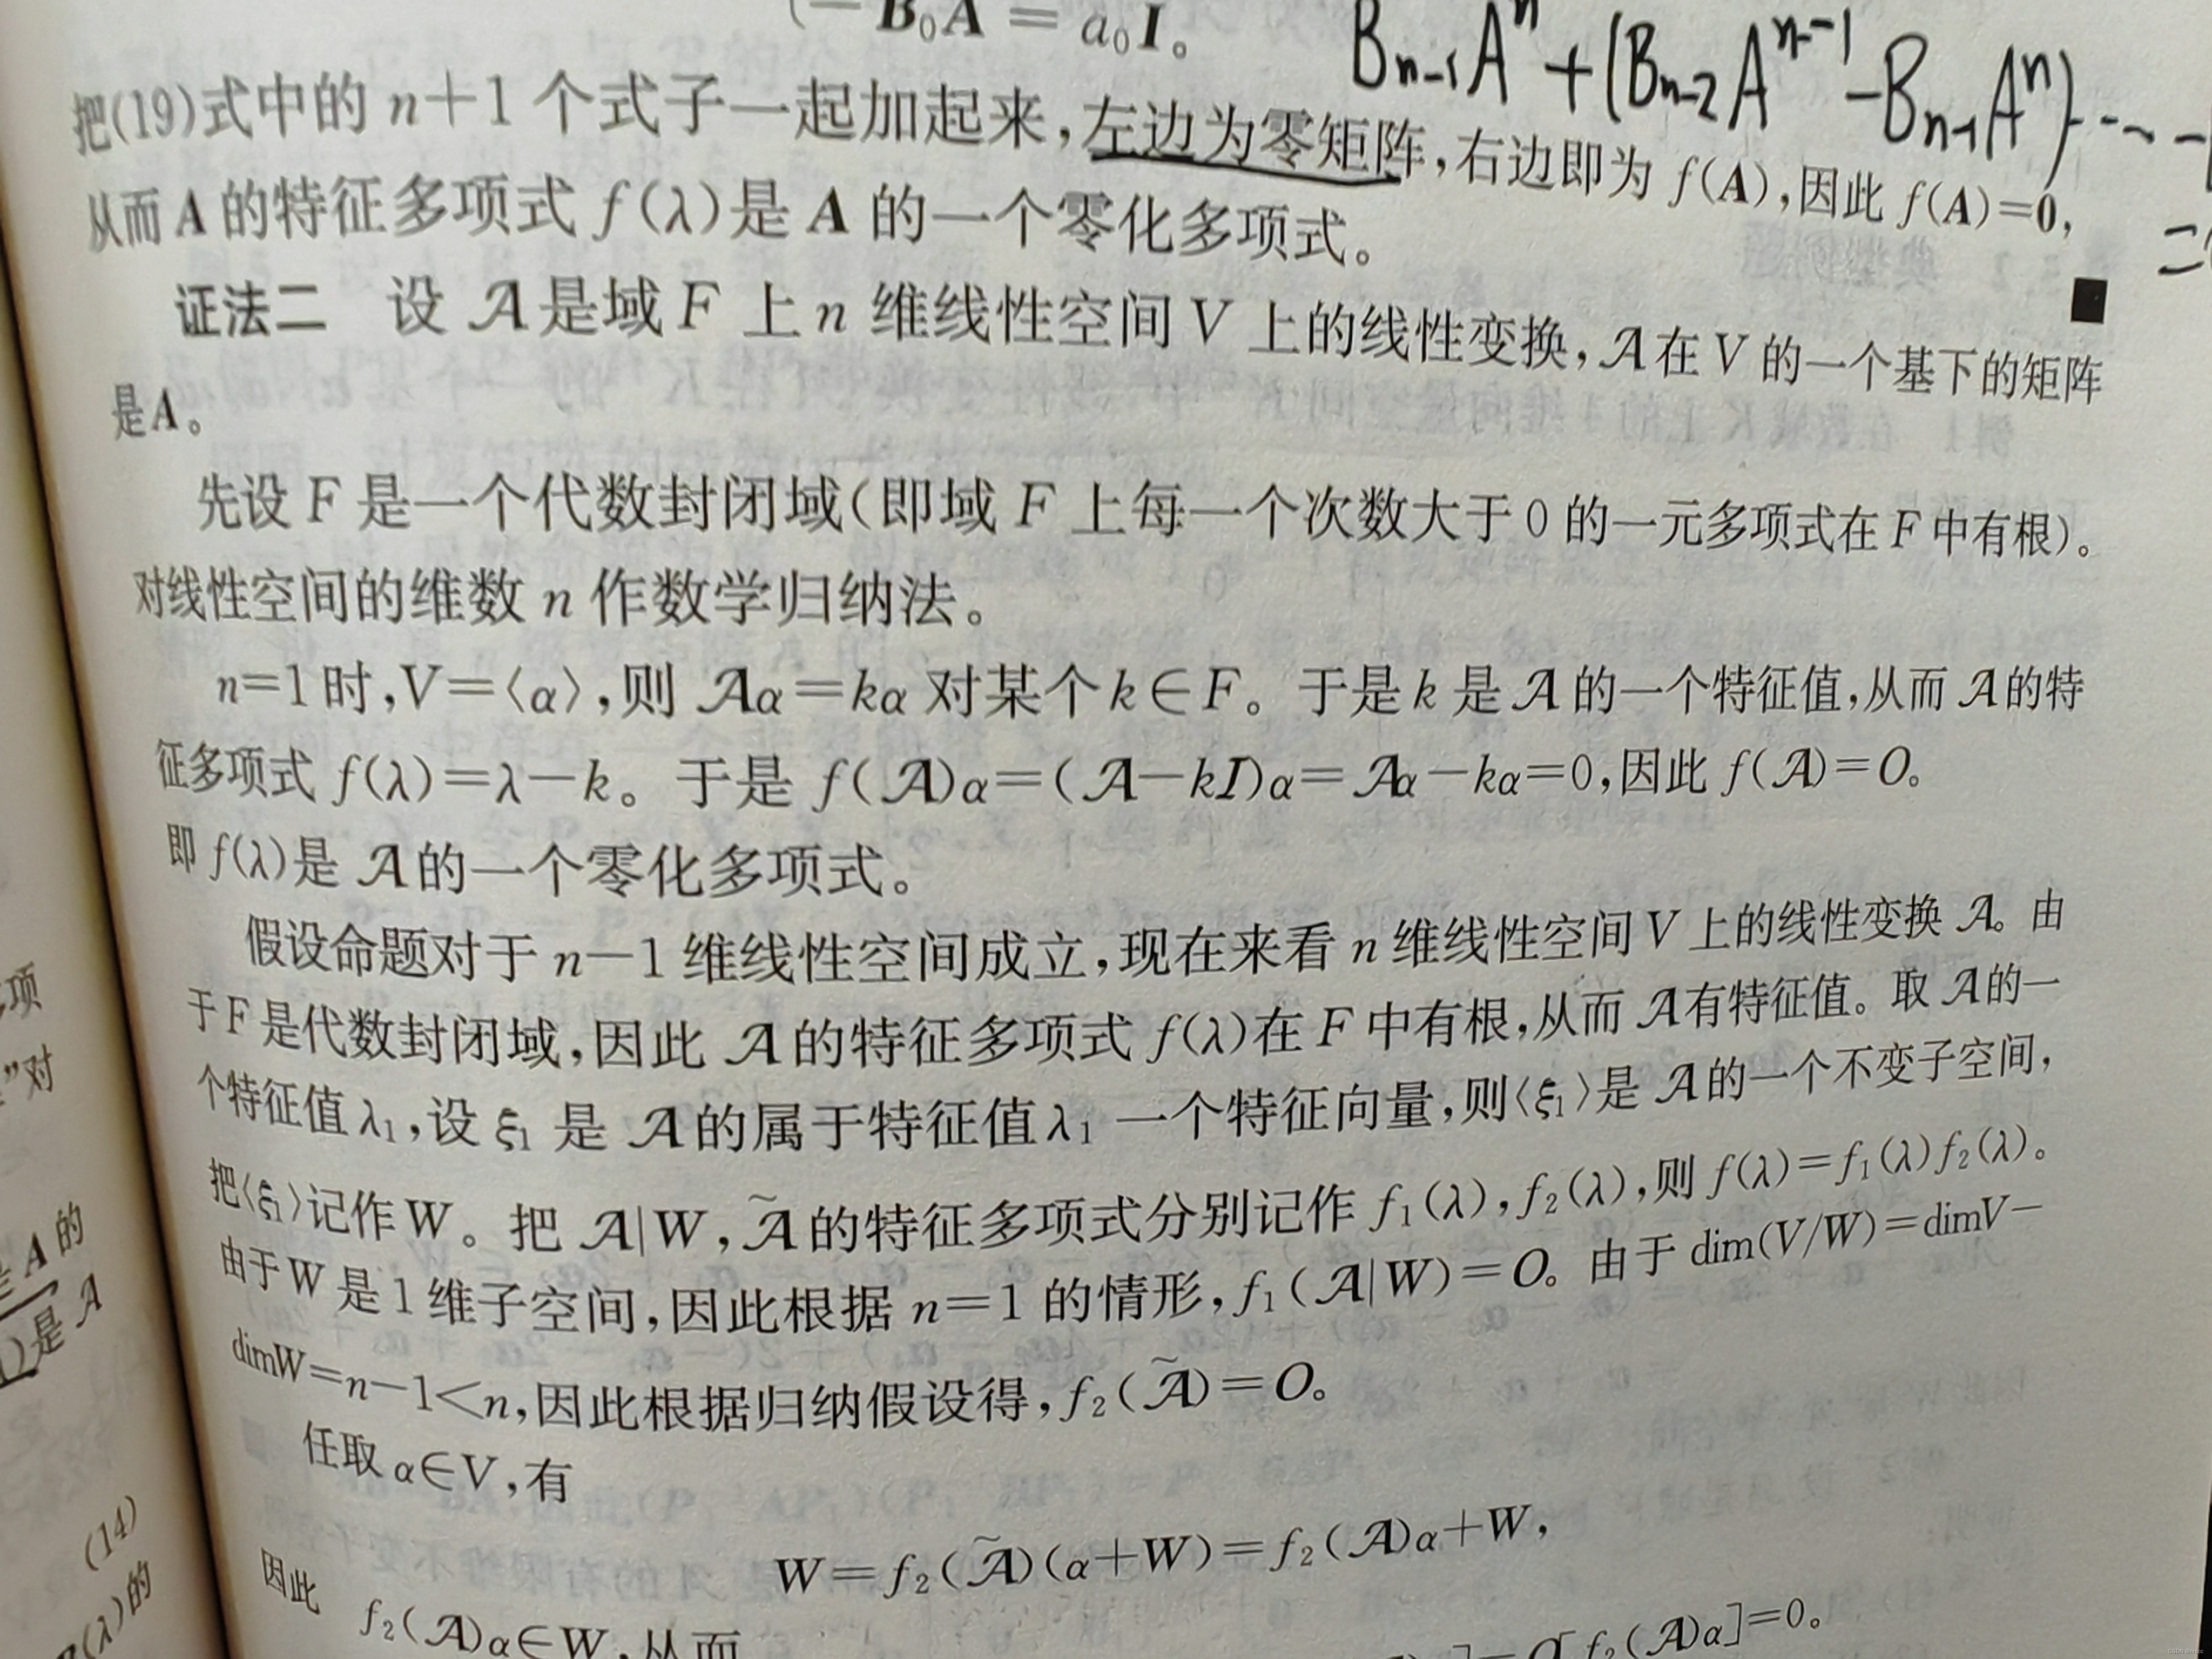 −B₀A = a₀I。
Bₙ₋₁Aⁿ+(Bₙ₋₂Aⁿ⁻¹−Bₙ₋₁Aⁿ)
把(19)式中的 n+1 个式子一起加起来,左边为零矩阵,右边即为 f(A),因此 f(A)=0,
从而 A 的特征多项式 f(λ)是 A 的一个零化多项式。
■
证法二 设 𝒜是域 F 上 n 维线性空间 V 上的线性变换,𝒜在 V 的一个基下的矩阵
是A。
先设 F 是一个代数封闭域(即域 F 上每一个次数大于 0 的一元多项式在 F 中有根)。
对线性空间的维数 n 作数学归纳法。
n=1 时,V=⟨α⟩,则 𝒜α=kα 对某个 k∈F。于是 k 是 𝒜的一个特征值,从而 𝒜的特
征多项式 f(λ)=λ−k。于是 f(𝒜)α=(𝒜−kI)α=𝒜α−kα=0,因此 f(𝒜)=O。
即 f(λ)是 𝒜的一个零化多项式。
假设命题对于 n−1 维线性空间成立,现在来看 n 维线性空间 V 上的线性变换 𝒜。由
于 F 是代数封闭域,因此 𝒜的特征多项式 f(λ)在 F 中有根,从而 𝒜有特征值。取 𝒜的一
个特征值 λ₁,设 ξ₁ 是 𝒜的属于特征值 λ₁ 一个特征向量,则⟨ξ₁⟩是 𝒜的一个不变子空间,
把⟨ξ₁⟩记作 W。把 𝒜|W,𝒜̃的特征多项式分别记作 f₁(λ),f₂(λ),则 f(λ)=f₁(λ)f₂(λ)。
由于 W 是 1 维子空间,因此根据 n=1 的情形,f₁(𝒜|W)=O。由于 dim(V/W)=dimV−
dimW=n−1<n,因此根据归纳假设得,f₂(𝒜̃)=O。
任取 α∈V,有
W=f₂(𝒜̃)(α+W)=f₂(𝒜)α+W,
因此
f₂(𝒜)α∈W,从而
[f₂(𝒜)α]=0。
项
”对
A 的
是 𝒜
(14)
(λ)的